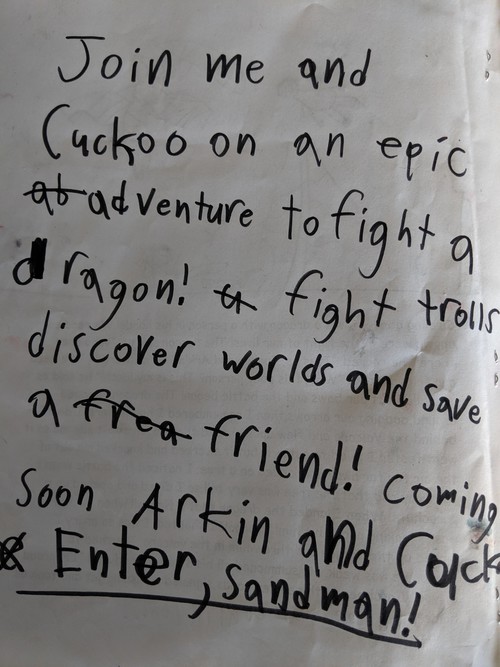 Join me and
Cuckoo on an epic
ab adventure to fight a
dragon! a fight trolls
discover worlds and save
a frea friend! coming
Soon Arkin and Cuck
& Enter, Sandman!